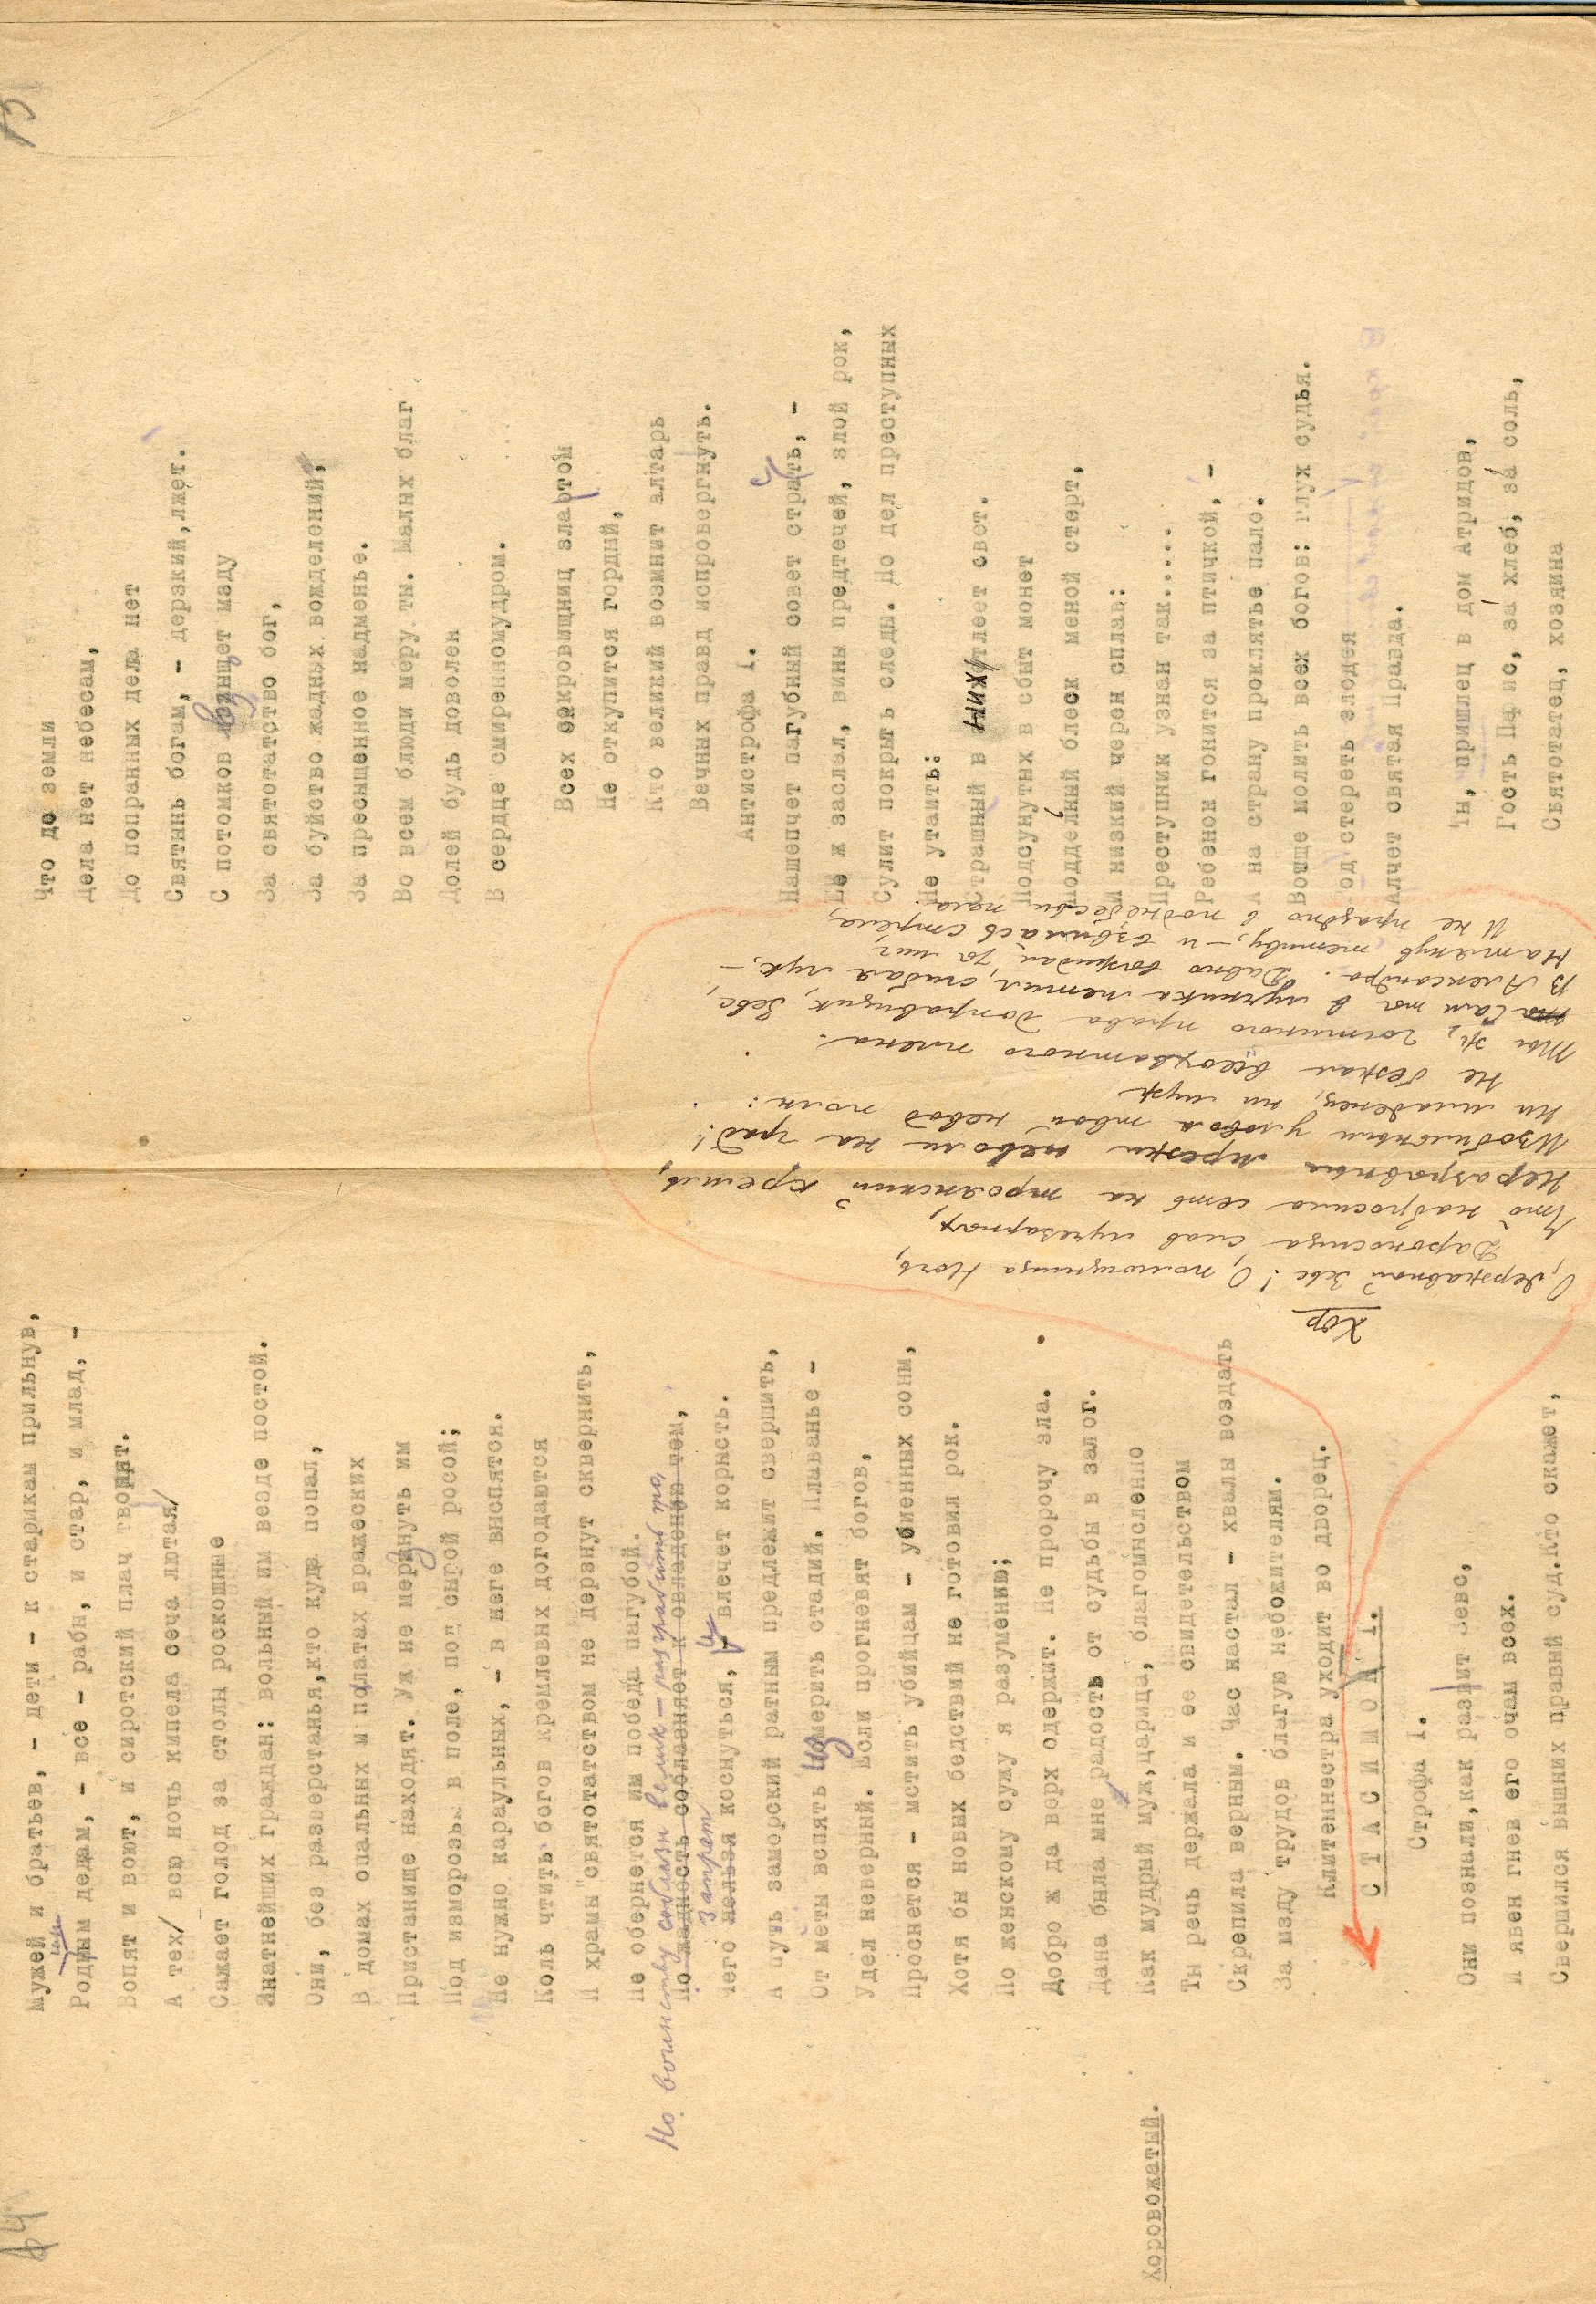 14
Мужей и братьев, - дети - к старикам прильнув,
Родным дедам, - все - рабы, и стар, и млад, -
Вопят и воют, и сиротский плач творят.
А тех/ всю ночь кипела сеча лютая/
Сажает голод за столы роскошные
Знатнейших граждан: вольный им везде постой.
Они, без разверстанья,кто куда попал,
В домах опальных и палатах вражеских
Пристанище находят. Уж не мерзнуть им
Под изморозью в поле, под сырой росой;
Не нужно караульных, - в неге выспятся.
Коль чтить богов кремлевых догодаются
И храмы святотатством не дерзнут сквернить,
Не обернется им победа пагубой.
Но воинству соблазн велик - разграбить то,
Но жадность соблазняет к овладенью тем,
запрет
Чего нельзя коснуться, - влечет корысть.
А путь заморский ратным предлежит свершить,
От меты вспять измерить стадий. Плаванье -
Удел неверный. Если прогневят богов,
Проснется - мстить убийцам - убиенных сонм,
Хотя бы новых бедствий не готовил рок.
По женскому сужу я разумению;
Добро ж да верх одержит. Не пророчу зла.
Дана была мне радость от судьбы в залог.
Хоровожатый.
Как мудрый муж,царица, благомысленно
Ты речь держала и ее свидетельством
Скрепила верным. Час настал - хвалы воздать
За мзду трудов благую небожителям.
Клитемнестра уходит во дворец.
Хор
О, державный Зевс! О, помощница Ночь,
Дароносица слав лучезарных,
Что набросила сеть на троянский кремль,
Неразрывные мрежи неволи на град!
Изобильный уловом твой невод полн:
Ни младенец, ни муж
Не бежал всеохватного плена.
Ты ж, гостиного права доправщик, Зевс,
Сам ты в лучника метил, сгибая лук, -
В Александра. Давно выжидал ты миг,
Натянув тетиву, - и взвилась стрела,
И не праздно в поднебесьи пала.
СТАСИМОН I.
Строфа I.
Они познали,как разит Зевс,
И явен гнев его очам всех.
Свершился вышних правый суд.Кто скажет,
15
Что до земли
Дела нет небесам,
До попранных дела нет
Святынь богам, - дерзкий,лжет.
С потомков взыщет мзду
За святотатство бог,
За буйство жадных вожделений,
За пресыщенное надменье.
Во всем блюди меру ты. Малых благ
Долей будь доволен
В сердце смиренномудром.
Всех сокровищниц златом
Не откупится гордый,
Кто великий возмнит алтарь
Вечных правд испровергнуть.
Антистрофа I.
Нашепчет пагубный совет страсть, -
Ее ж заслал, вины предтечей, злой рок,
Сулит покрыть следы. Но дел преступных
Не утаить:
Страшный в них тлеет свет.
Подсунутых в сбыт монет
Поддельный блеск меной стерт,
И низкий черен сплав:
Преступник узнан так.....
Ребенок гонится за птичкой, -
А на страну проклятье пало.
Вотще молить всех богов: глух судья.
Род стереть злодея
Алчет святая Правда.
Он, пришлец в дом Атридов,
Гость Парис, за хлеб, за соль,
Святотатец, хозяина